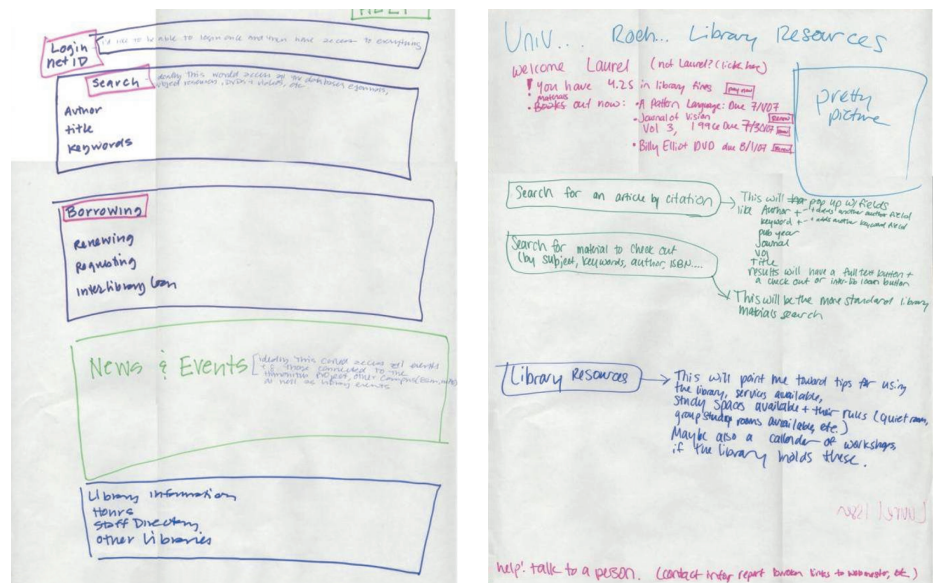 HELP
Login
net ID
I'd like to be able to login once and then have access to everything
Search
ideally this would access all the databases,
Author
title
keywords
Borrowing
Renewing
Requesting
Interlibrary Loan
News & Events
ideally this could access all events
those connected to the
Humanities Project, other campus
as well as library events
Library information
Hours
Staff Directory
other Libraries
Univ... Roch... Library Resources
Welcome Laurel (not Laurel? Click here)
! You have 4.25 in library fines pay now
materials
Books out now: • A Pattern Language: Due 7/1/07
• Journal of Vision
Vol 3, 1996 Due 7/30/07
• Billy Elliot DVD due 8/1/07
pretty
picture
Search for an article by citation
This will pop up w/ fields
like Author + - + adds another author field
keyword + - + adds another keyword field
pub year
Journal
vol
Title
results will have a full text button +
a check out or inter-lib loan button
Search for material to check out
(by subject, keywords, author, ISBN....
This will be the more standard library
materials search
Library Resources
This will point me toward tips for using
the library, services available,
study spaces available + their rules (quiet room,
group study rooms available, etc.)
Maybe also a callender of workshops
if the library holds these.
help! talk to a person. (contact info, report broken links to webmaster, etc.)